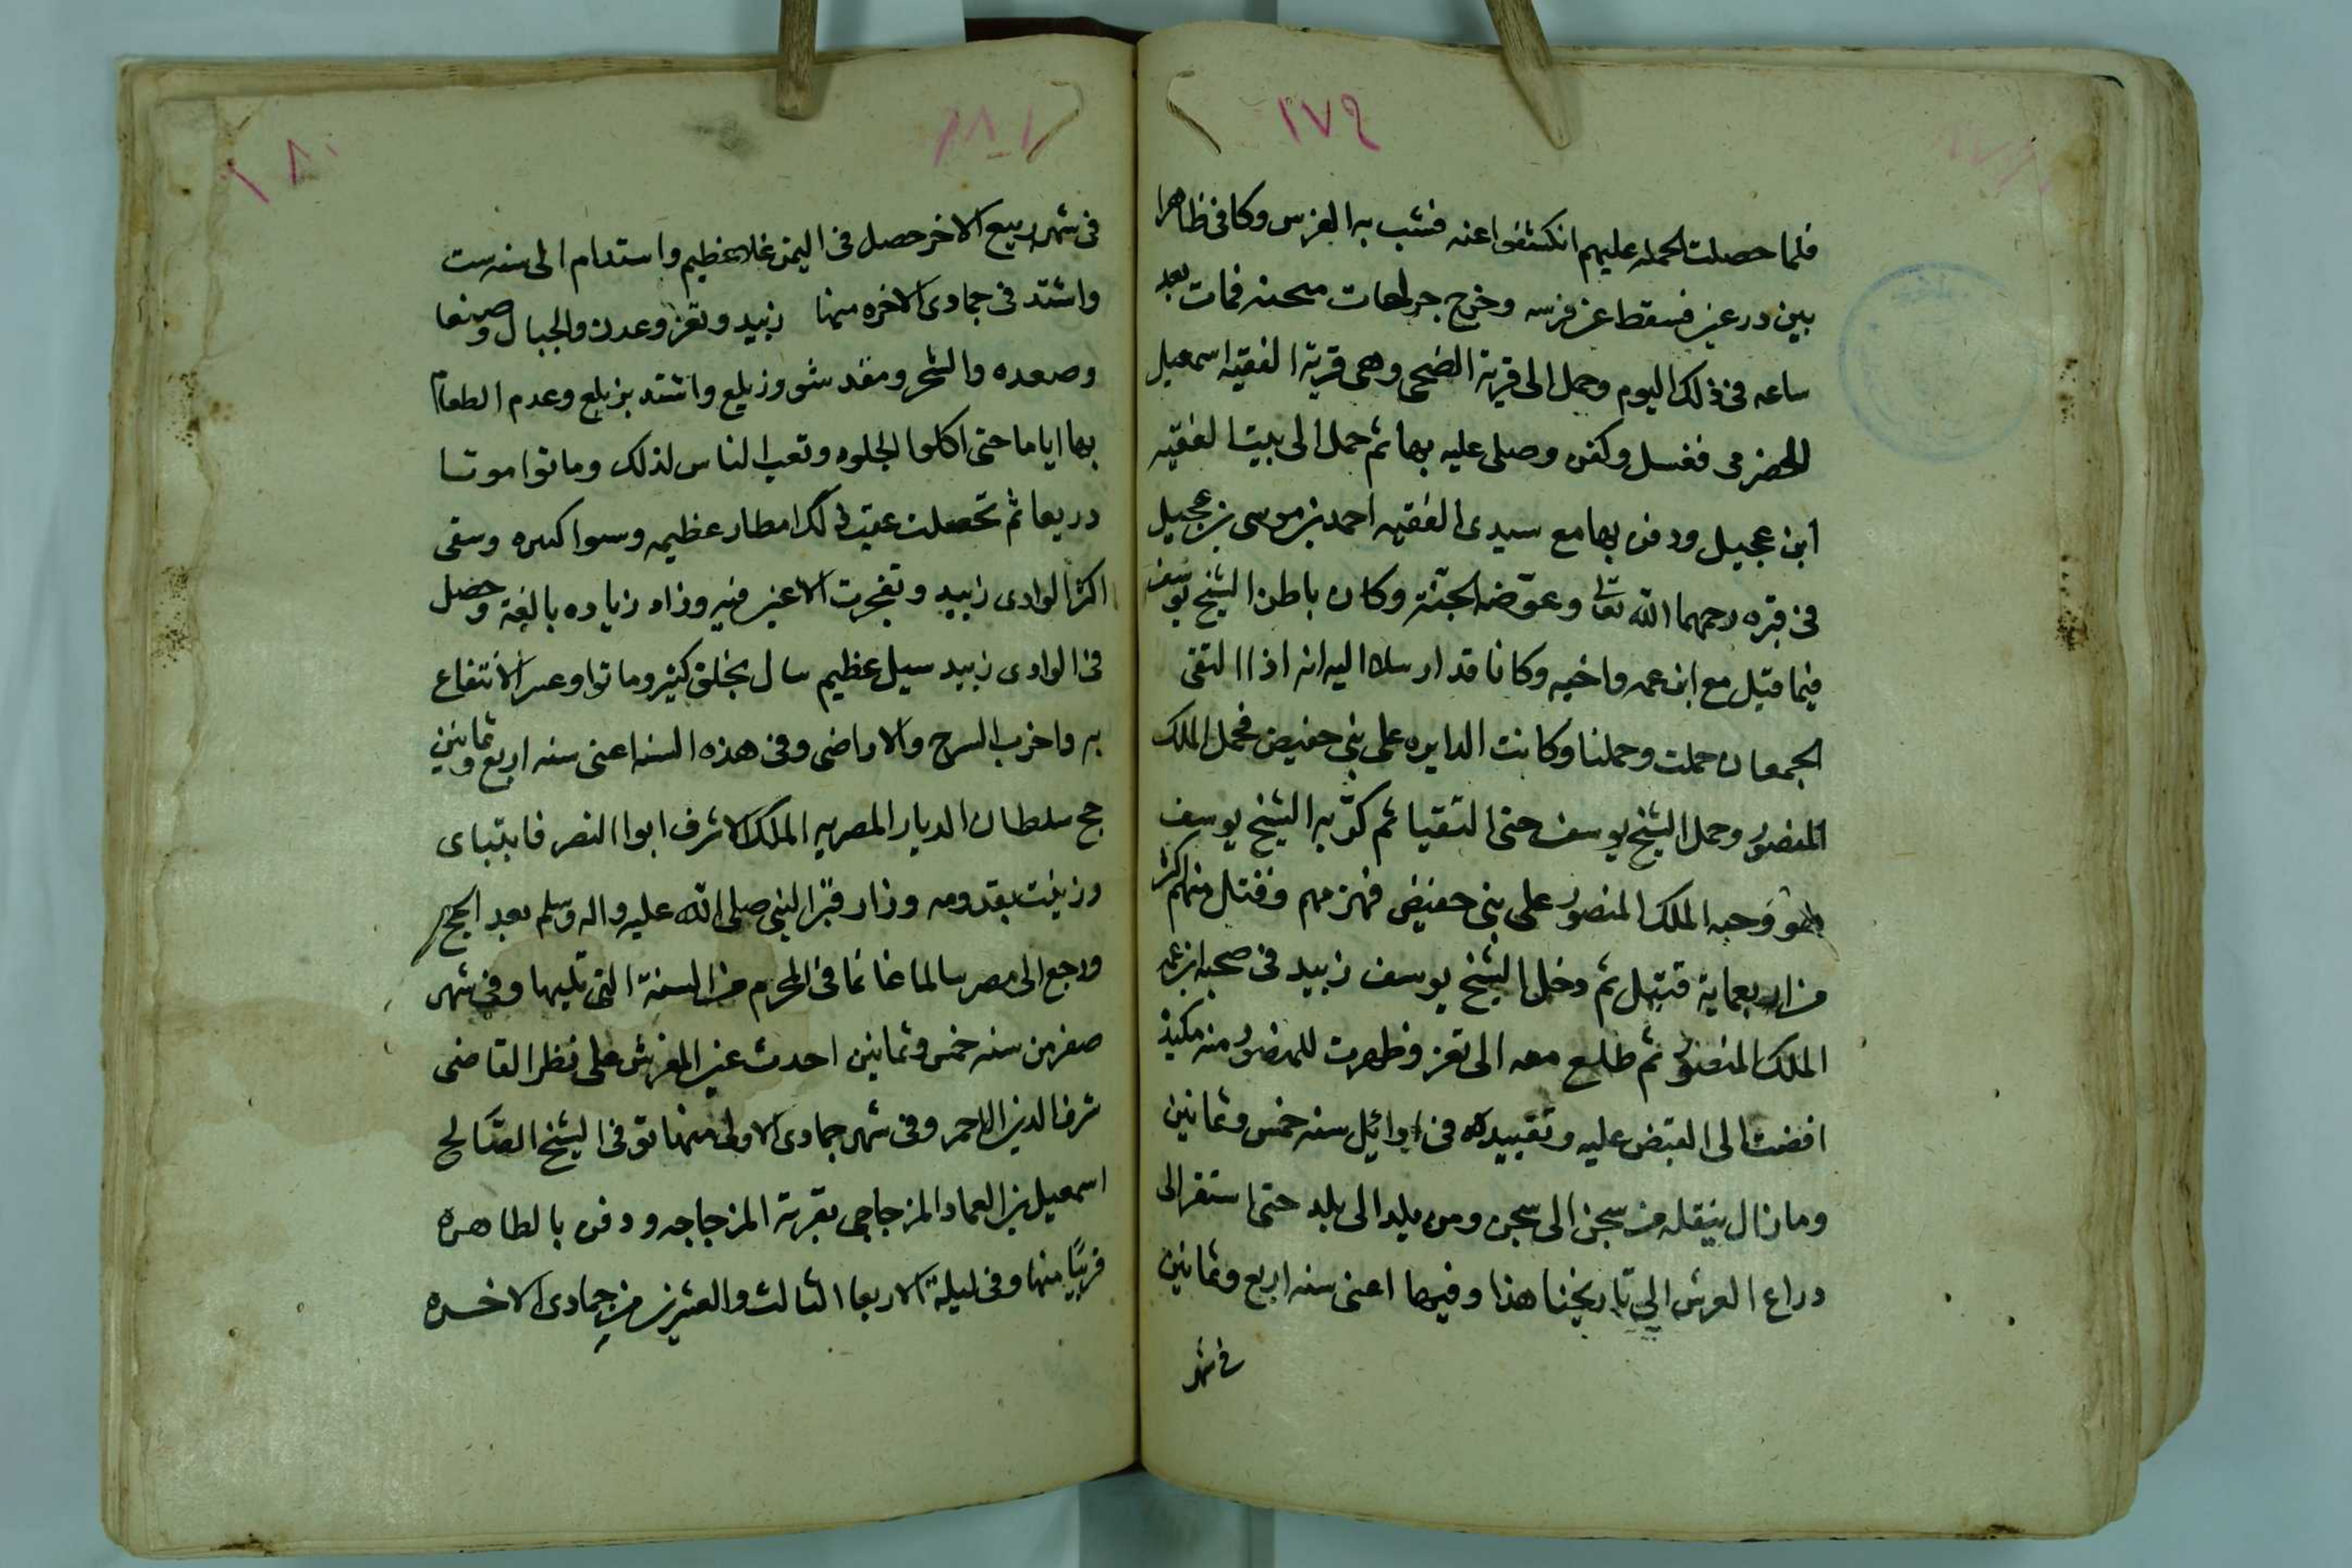 ٢٧٩
فلما حصلت الحمله عليهم انكشفوا عنه فشب به الفرس وكا فى ظاهرا
بين درعين فسقط عن فرسه وخرج جراحات مثخنه فمات بعد
ساعه فى ذلك اليوم وحمل الى قرية الضحى وهى قرية الفقيه اسمعيل
الحضرمى فغسل وكفن وصلى عليه بها ثم حمل الى بيت الفقيه
ابن عجيل ودفن بها مع سيدى الفقيه احمد بن موسى بن عجيل
فى قبره رحمهما الله تعالى وعوضه الجنة وكان باطن الشيخ يوسف
فيما قيل مع ابن عمه واخيه وكانا قد ارسلا اليه انه اذا التقى
الجمعان حملت وحملنا وكانت الدايره على بنى حفيص فحمل الملك
المنصور وحمل الشيخ يوسف حتى التقيا ثم كر به الشيخ يوسف
هو وصحبه الملك المنصور على بنى حفيض فهزمهم وقتل منهم اكثر
من اربعماية قتيل ثم دخل الشيخ يوسف زبيد فى صحبه ابن عمه
الملك المنصور ثم طلع معه الى تعز وظهرت للمنصور منه مكيدة
افضت الى القبض عليه وتقييده فى اوائل سنه خمس وثمانين
وما زال ينقله من سجن الى سجن ومن بلد الى بلد حتى استقر الى
دراع العرش الى تاريخنا هذا وفيها اعنى سنه اربع وثمانين
فى شهر
٢٨٠
فى شهر ربيع الاخر حصل فى اليمن غلا عظيم واستدام الى سنه ست
واشتد فى جمادى الاخره منها زبيد وتعز وعدن والجبال وصنعا
وصعده والشحر ومقدشو وزيلع واشتد بزيلع وعدم الطعام
بها اياما حتى اكلوا الجلود وتعب الناس لذلك وماتوا موتا
دريعا ثم تحصلت عقيب ذلك امطار عظيمه وسيول كثيره وسقى
اكثر الوادى زبيد وتفجرت الاعين فيه وزاد زياده بالغة وحصل
فى الوادى زبيد سيل عظيم سال بخلق كثير وماتوا وعسر الانتفاع
به واخرب السرح والاراضى وفى هذه السنه اعنى سنه اربع وثمانين
حج سلطان الديار المصريه الملك الاشرف ابوا النصر قايتباى
وزينت بقدومه وزار قبر النبى صلى الله عليه واله وسلم بعد الحج
ورجع الى مصر سالما غانما فى المحرم من السنة التى تليها وفى شهر
صفر من سنه خمس وثمانين احدث عين المغرش على نظر القاضى
شرف الدين الاحمر وفى شهر جمادى الاولى منها توفى الشيخ الصالح
اسمعيل بن العماد المزجاجى بقرية المزجاجه ودفن بالطاهره
قريبا منها وفى ليلة الاربعا الثالث والعشرين من جمادى الاخره